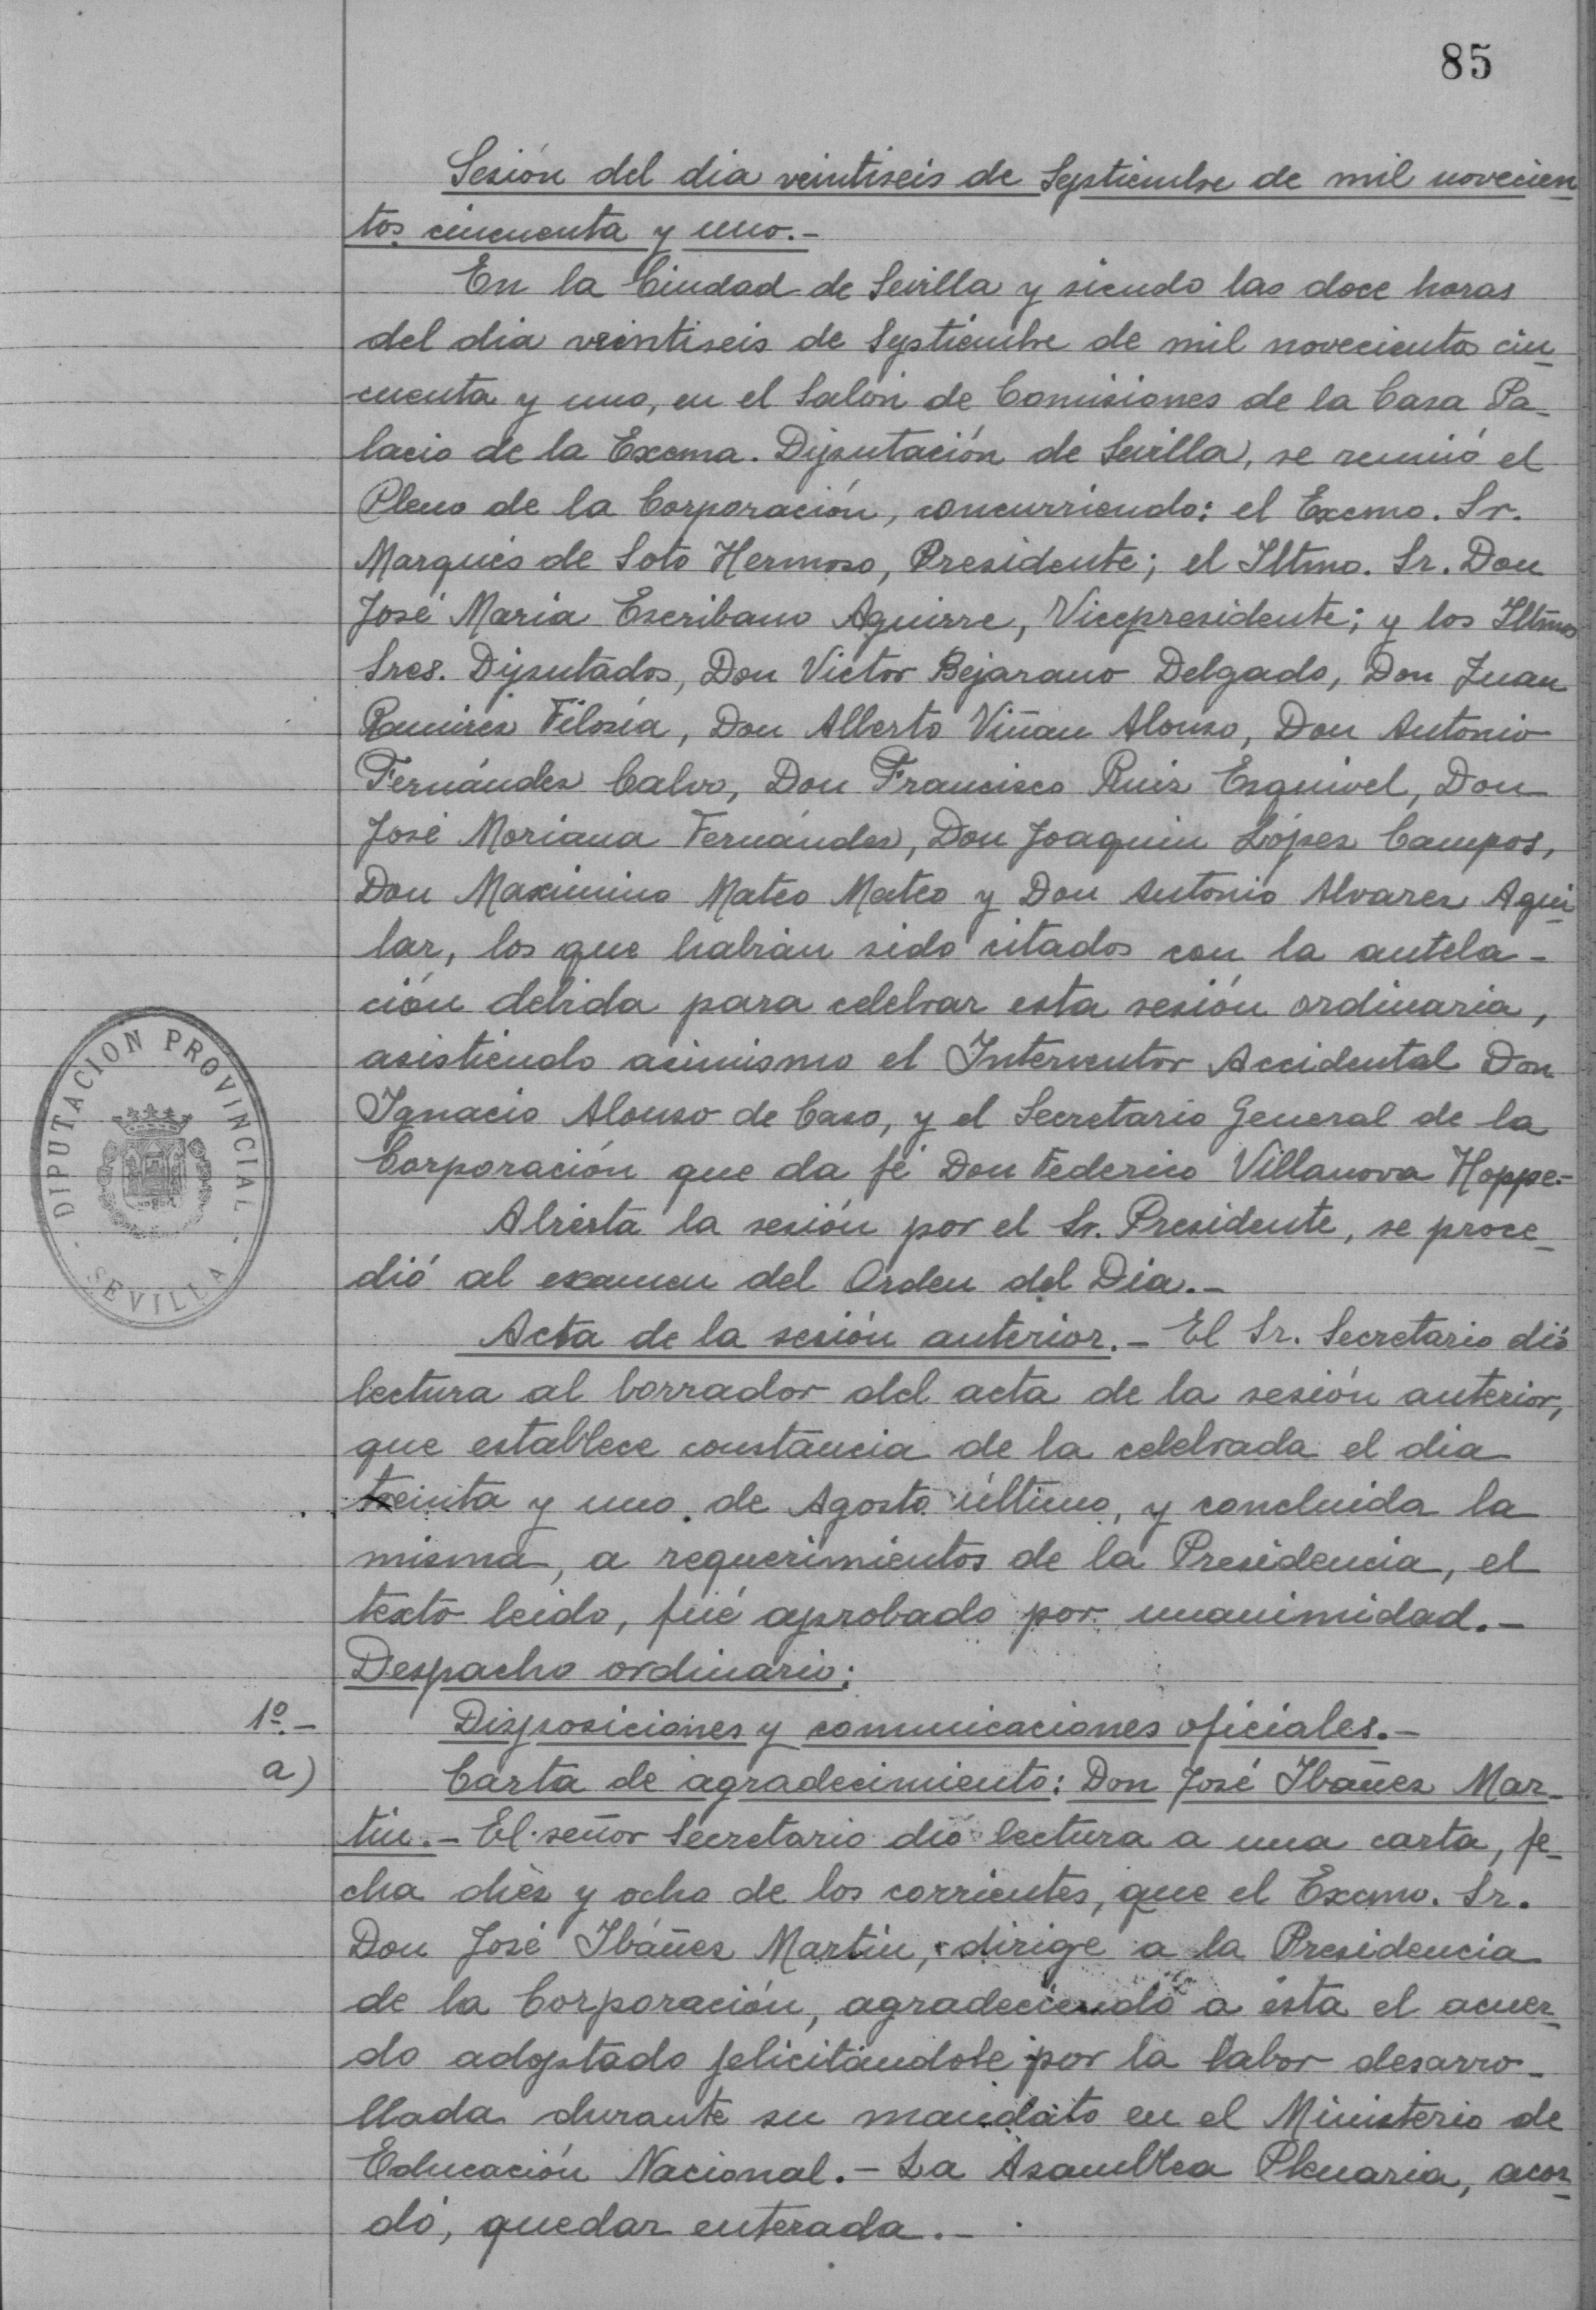 85
Sesión del dia veintiseis de Septiembre de mil novecien
tos cincuenta y uno.-
En la Ciudad de Sevilla y siendo las doce horas
del dia veintiseis de Septiembre de mil novecientos cin
cuenta y uno, en el Salón de Comisiones de la Casa Pa-
lacio de la Excma. Diputación de Sevilla, se reunió el
Pleno de la Corporación, concurriendo: el Excmo. Sr.
Marqués de Soto Hermoso, Presidente; el Iltmo. Sr. Don
José María Escribano Aguirre, Vicepresidente; y los Iltmos
Sres. Diputados, Don Victor Bejarano Delgado, Don Juan
Ramirez Filosía, Don Alberto Viñau Alonso, Don Antonio
Fernández Calvo, Don Francisco Ruiz Esquivel, Don
José Moriana Fernández, Don Joaquin López Campos,
Don Maximino Mateo Mateo y Don Antonio Alvarez Agui
lar, los que habían sido citados con la antela-
ción debida para celebrar esta sesión ordinaria,
asistiendo asimismo el Interventor Accidental Don
Ignacio Alonso de Caso, y el Secretario General de la
Corporación que da fé Don Federico Villanova Hoppe.-
Abierta la sesión por el Sr. Presidente, se proce-
dió al examen del Orden del Dia.-
Acta de la sesión anterior.- El Sr. Secretario dió
lectura al borrador del acta de la sesión anterior,
que establece constancia de la celebrada el dia
treinta y uno de Agosto último, y concluida la
misma, a requerimientos de la Presidencia, el
texto leido, fué aprobado por unanimidad.-
Despacho ordinario:
1º.- Disposiciones y comunicaciones oficiales.-
a) Carta de agradecimiento: Don José Ibañez Mar-
tin.- El señor Secretario dió lectura a una carta, fe-
cha diez y ocho de los corrientes, que el Excmo. Sr.
Don José Ibáñez Martin, dirige a la Presidencia
de la Corporación, agradeciendo a ésta el acuer-
do adoptado felicitándole por la labor desarro-
llada durante su mandato en el Ministerio de
Educación Nacional.- La Asamblea Plenaria, acor-
dó, quedar enterada.-
DIPUTACION PROVINCIAL
- SEVILLA -